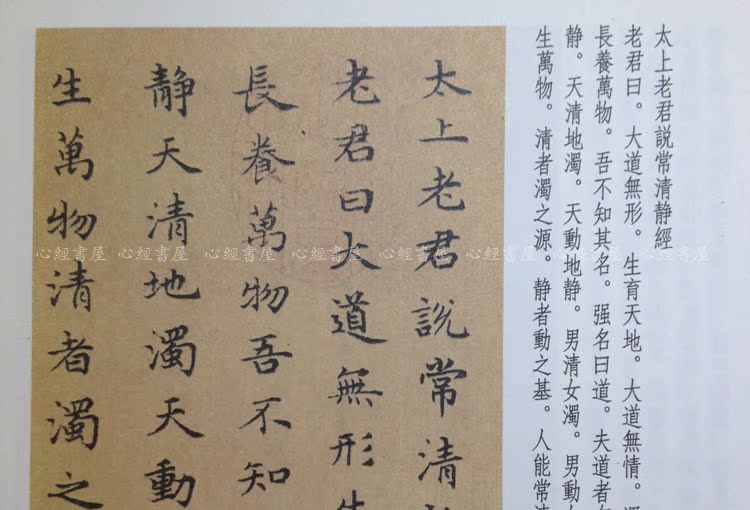 太上老君說常清静經
老君曰。大道無形。生育天地。大道無情。
長養萬物。吾不知其名。强名曰道。夫道者
静。天清地濁。天動地静。男清女濁。男動
生萬物。清者濁之源。静者動之基。人能常
太上老君說常清
老君曰大道無形
長養萬物吾不知
静天清地濁天動
生萬物清者濁之
心經書屋 心經書屋 心經書屋 心經書屋 心經書屋 心經書屋 心經書屋 心經書屋